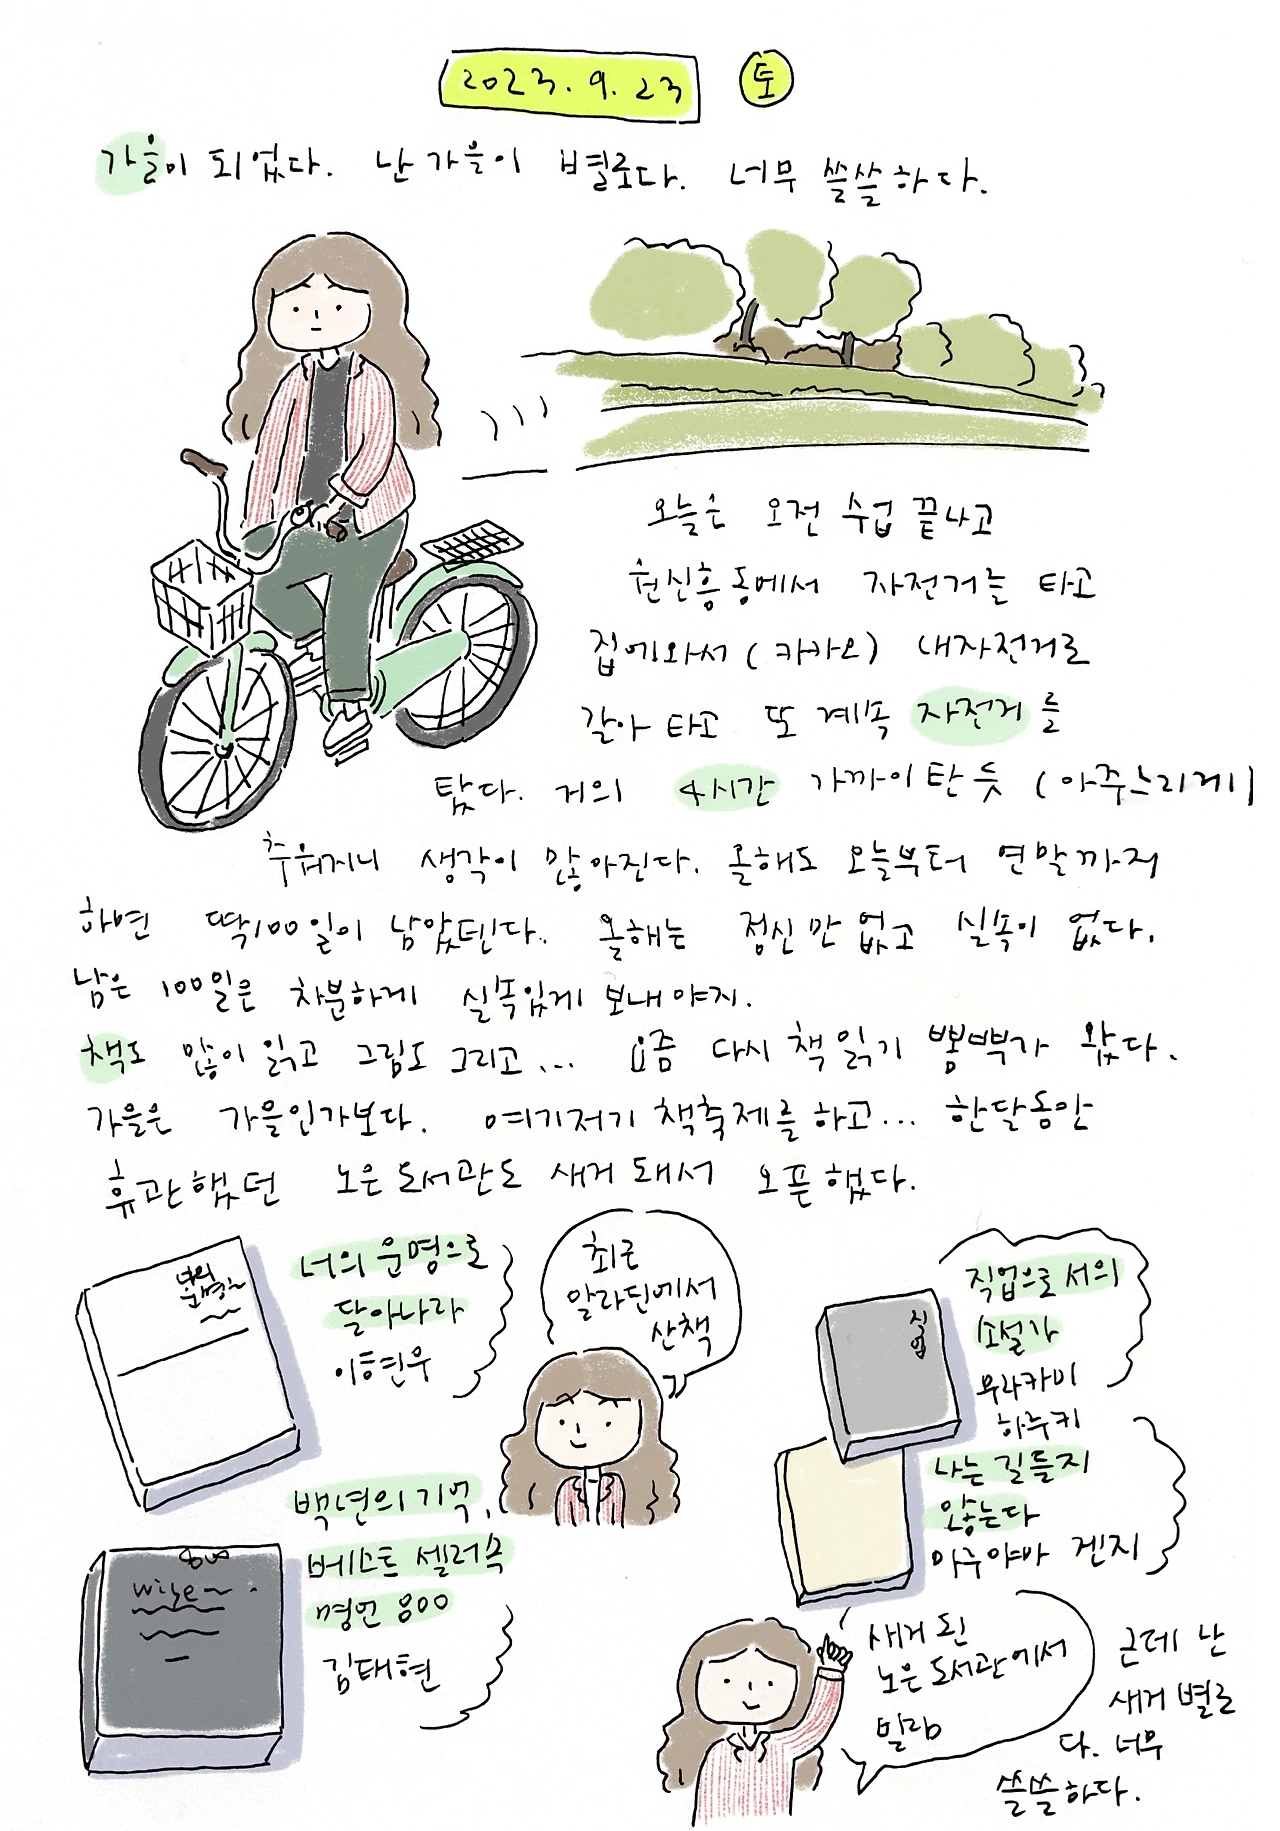 2023. 9. 23 토
가을이 되었다. 난 가을이 별로다. 너무 쓸쓸하다.
오늘은 오전 수업 끝나고
원신흥동에서 자전거를 타고
집에와서 (카카오) 내자전거로
갈아 타고 또 계속 자전거를
탔다. 거의 4시간 가까이탄 듯 (아주느리게)
추워지니 생각이 많아진다. 올해도 오늘부터 연말까지
하면 딱100일이 남았단다. 올해는 정신만 없고 실속이 없다.
남은 100일은 차분하게 실속있게 보내야지.
책도 많이 읽고 그림도 그리고... 요즘 다시 책 읽기 뽐뿌가 왔다.
가을은 가을인가보다. 여기저기 책축제를 하고... 한달동안
휴관했던 노은도서관도 새거 돼서 오픈했다.
너의 운명으로
달아나라
이현우
최근
알라딘에서
산책
백년의 기억,
베스트 셀러 속
명언 800
김태현
wise~
직업으로서의
소설가
무라카미
하루키
직업
나는 길들지
않는다
마루야마 겐지
새거 된
노은 도서관에서
빌림
근데 난
새거 별로
다. 너무
쓸쓸하다.